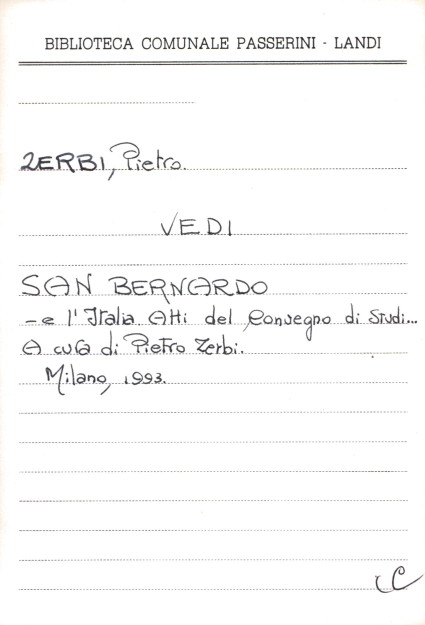 BIBLIOTECA COMUNALE PASSERINI - LANDI
ZERBI, Pietro.
VEDI
SAN BERNARDO
- e l'Italia Atti del Convegno di Studi...
A cura di Pietro Zerbi.
Milano, 1993.